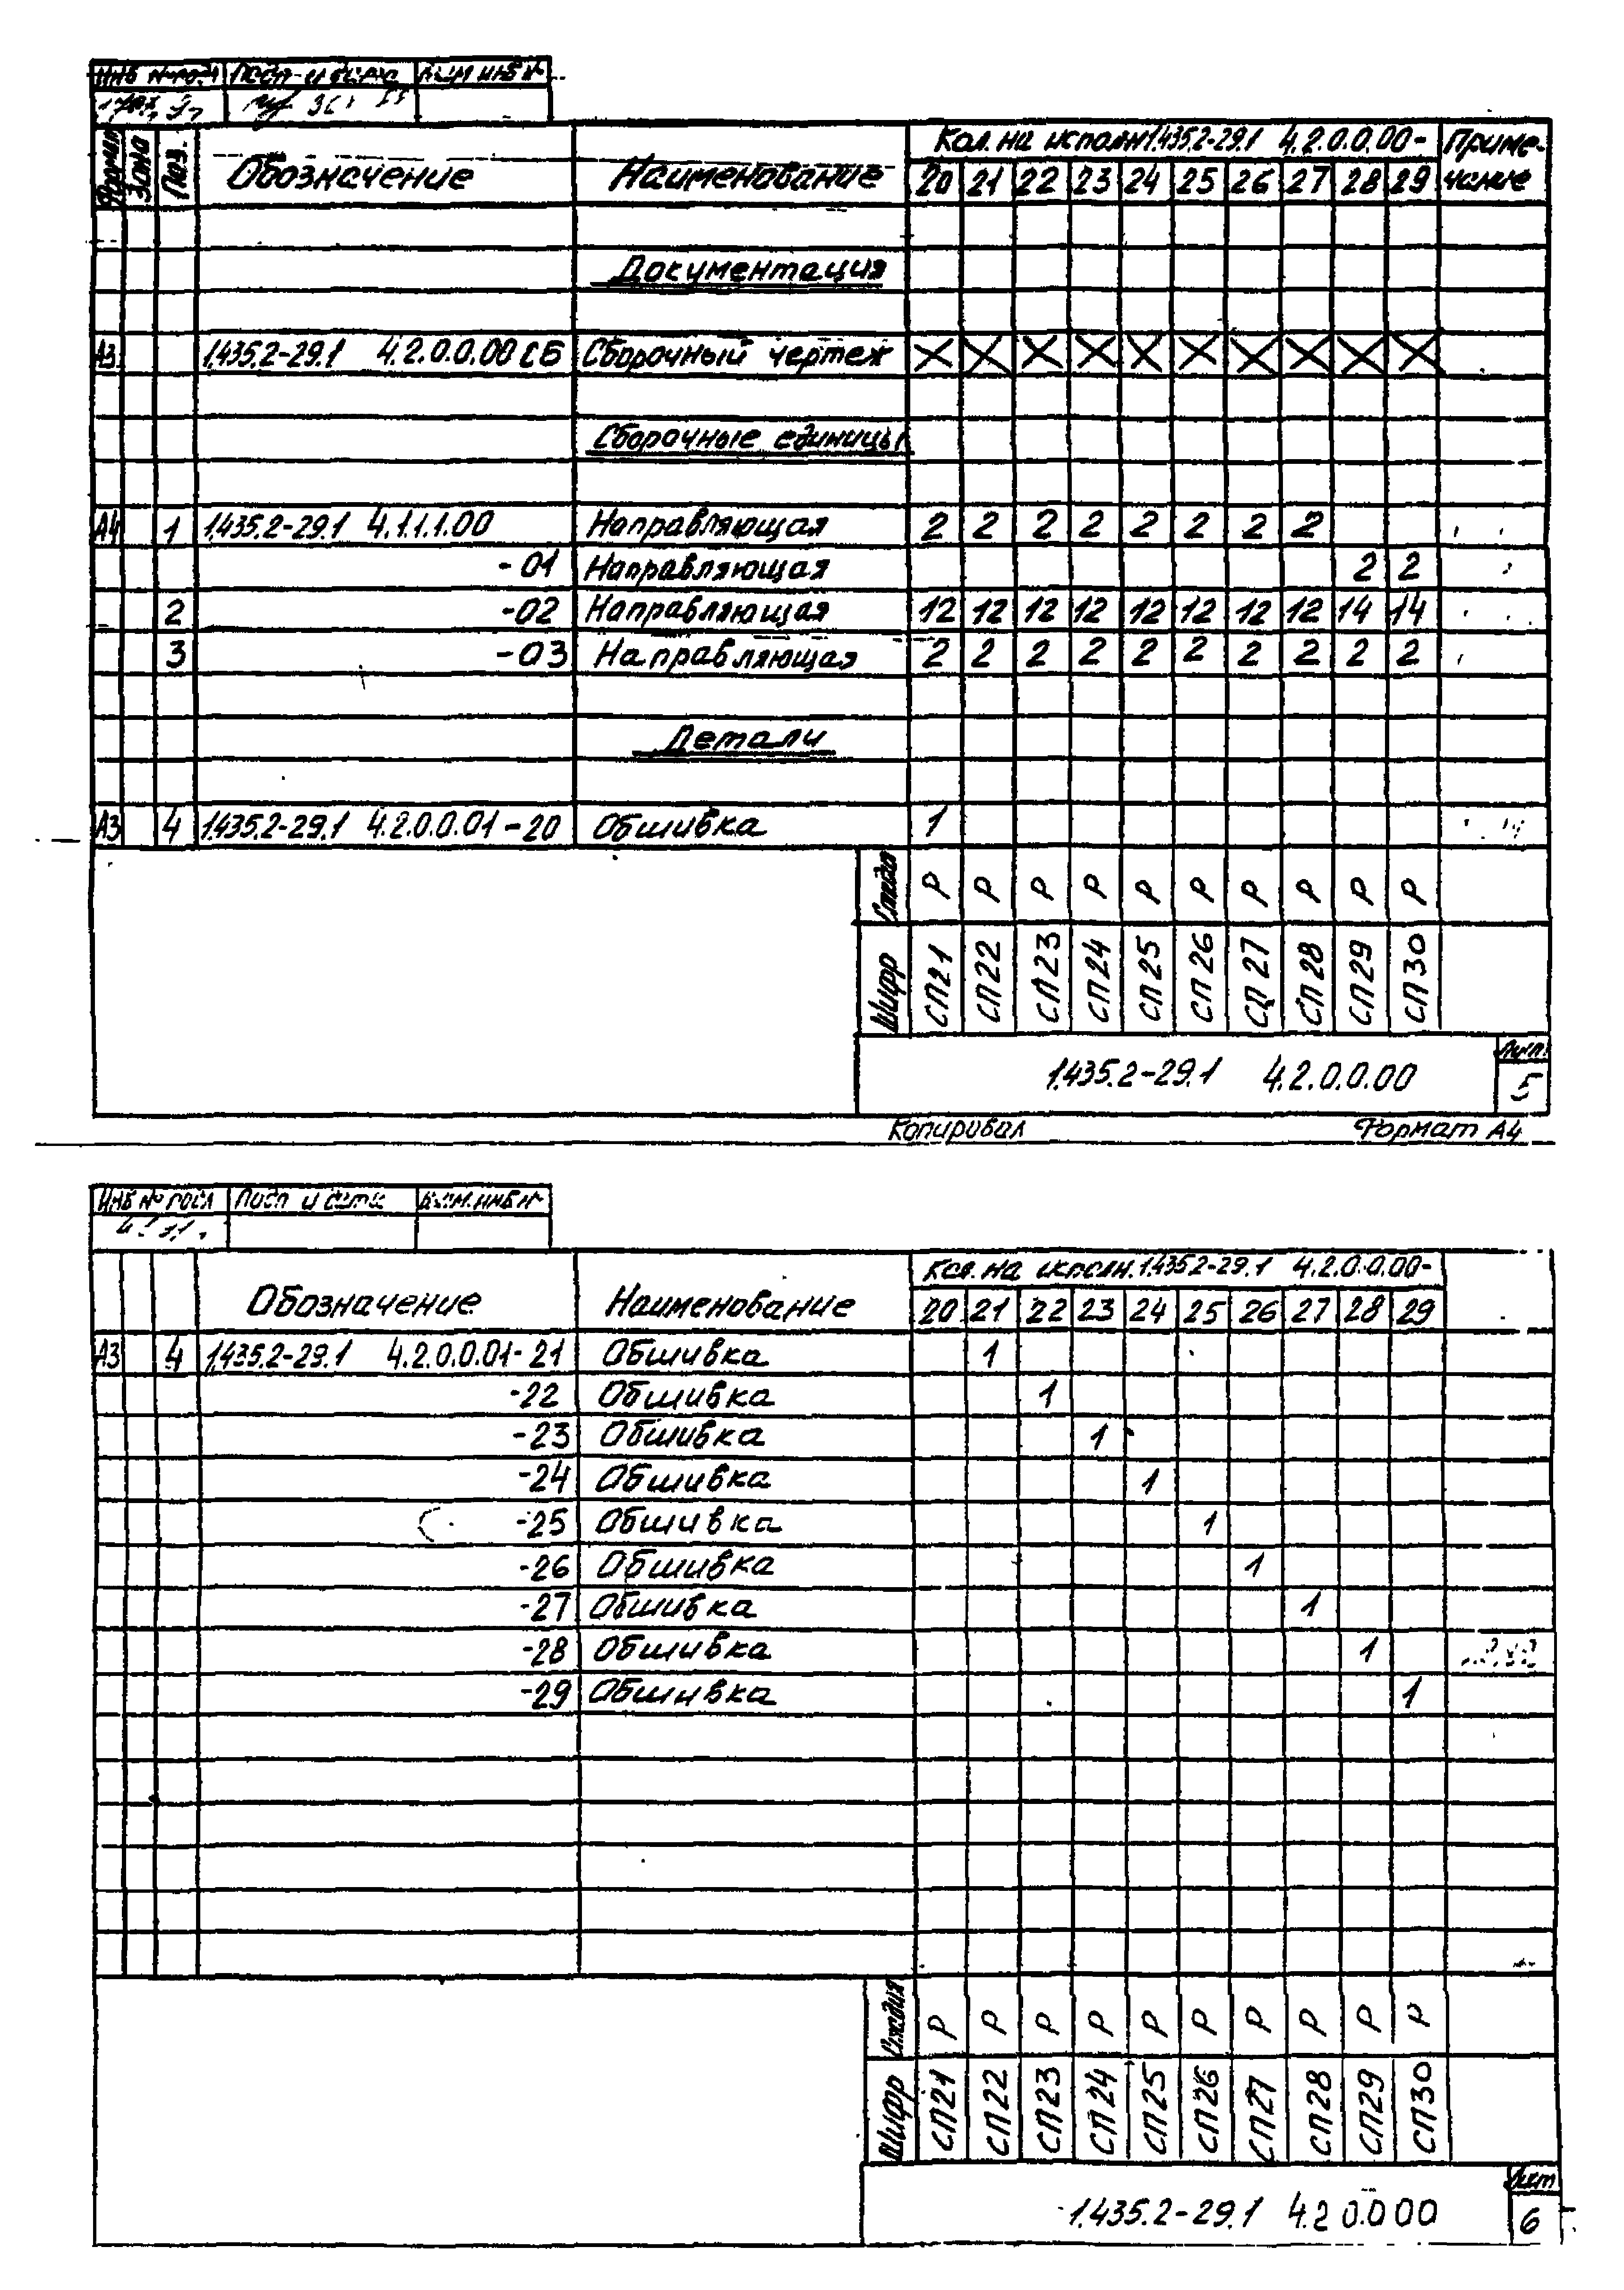 Инв № подл Подп. и дата Взам инв №
Формат Зона Поз. Обозначение Наименование Кол. на исполн 1.435.2-29.1 4.2.0.0.00- Приме-
20 21 22 23 24 25 26 27 28 29 чание
Документация
А3 1.435.2-29.1 4.2.0.0.00 СБ Сборочный чертеж X X X X X X X X X X
Сборочные единицы
А4 1 1.435.2-29.1 4.1.1.1.00 Направляющая 2 2 2 2 2 2 2 2
-01 Направляющая 2 2
2 -02 Направляющая 12 12 12 12 12 12 12 12 14 14
3 -03 Направляющая 2 2 2 2 2 2 2 2 2 2
Детали
А3 4 1.435.2-29.1 4.2.0.0.01-20 Обшивка 1
Стадия Р Р Р Р Р Р Р Р Р Р
Шифр СП21 СП22 СП23 СП24 СП25 СП26 СП27 СП28 СП29 СП30
1.435.2-29.1 4.2.0.0.00 Лист 5
Копировал Формат А4
Инв № подл Подп и дата Взам. инв №
Обозначение Наименование Кол. на исполн. 1.435.2-29.1 4.2.0.0.00-
20 21 22 23 24 25 26 27 28 29
А3 4 1.435.2-29.1 4.2.0.0.01-21 Обшивка 1
-22 Обшивка 1
-23 Обшивка 1
-24 Обшивка 1
-25 Обшивка 1
-26 Обшивка 1
-27 Обшивка 1
-28 Обшивка 1
-29 Обшивка 1
Стадия Р Р Р Р Р Р Р Р Р Р
Шифр СП21 СП22 СП23 СП24 СП25 СП26 СП27 СП28 СП29 СП30
1.435.2-29.1 4.2 0.0 00 Лист 6